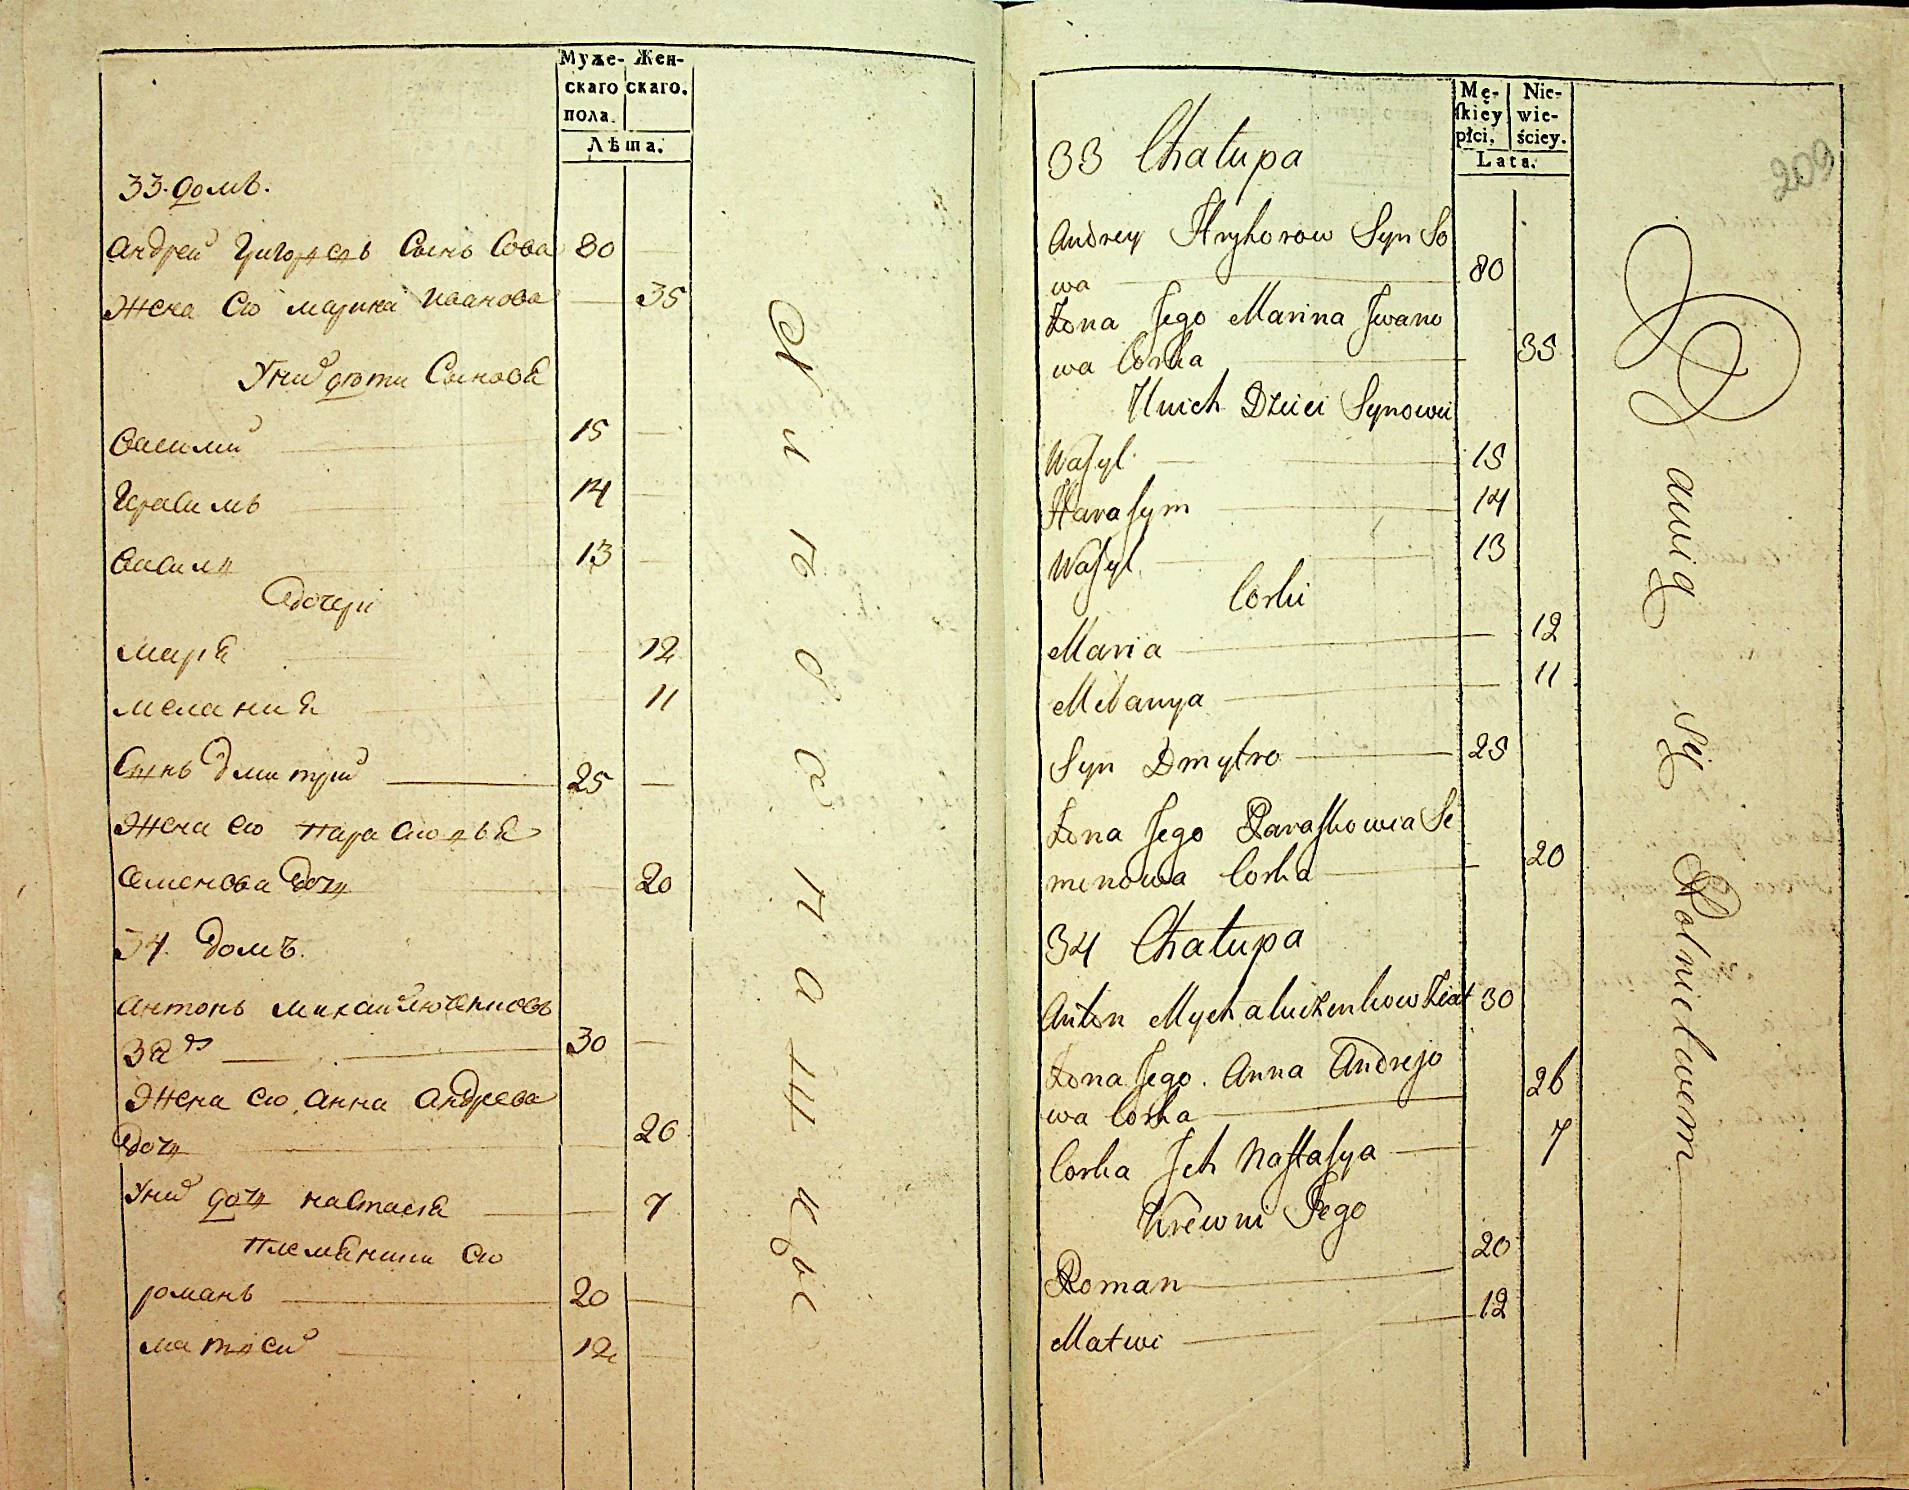 Муже- Жен-
скаго скаго.
пола.
Лѣта.
33. домъ.
Андрей Григорьевъ Сынъ Сова 80
Жена Его Марина Иванова 35
У них дѣти Сыновя
Василий 15
Герасимъ 14
Василь 13
Дочери
Маря 12
Мелания 11
Сынъ Дмитрий 25
Жена Его Парасковья
Семенова Дочь 20
34. Домъ.
Антонъ
Зять 30
Жена Его Анна Андреева
Дочь 26
У них дочь Настася 7
Племянники Его
Романъ 20
Матвей 12
Mę- Nie-
skiéy wie-
płci, ściey.
Lata.
209
33 Chałupa
Andrey Hryhorow Syn So
wa 80
Żona Jego Marina Jwano
wa Corka 35
U nich Dzieci Synowie
Wasyl 15
Harasym 14
Wasyl 13
Corki
Maria 12
Melanya 11
Syn Dmytro 25
Żona Jego Paraskowia Se
menowa Corka 20
34 Chałupa
Anton Mychaluczenkow Ziat 30
Żona Jego Anna Andrejo
wa Corka 26
Corka Jch Nastasya 7
Krewni Jego
Roman 20
Matwi 12
Bawią się Rolnictwem